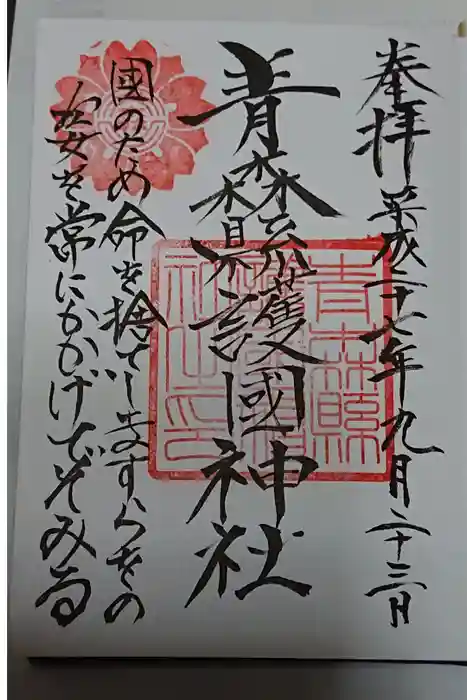 奉拝 平成二十七年九月二十三日
青森縣護國神社
國のため命を捨てしますらをの
姿を常にかかげてぞみる
青森縣
護國神
社之印